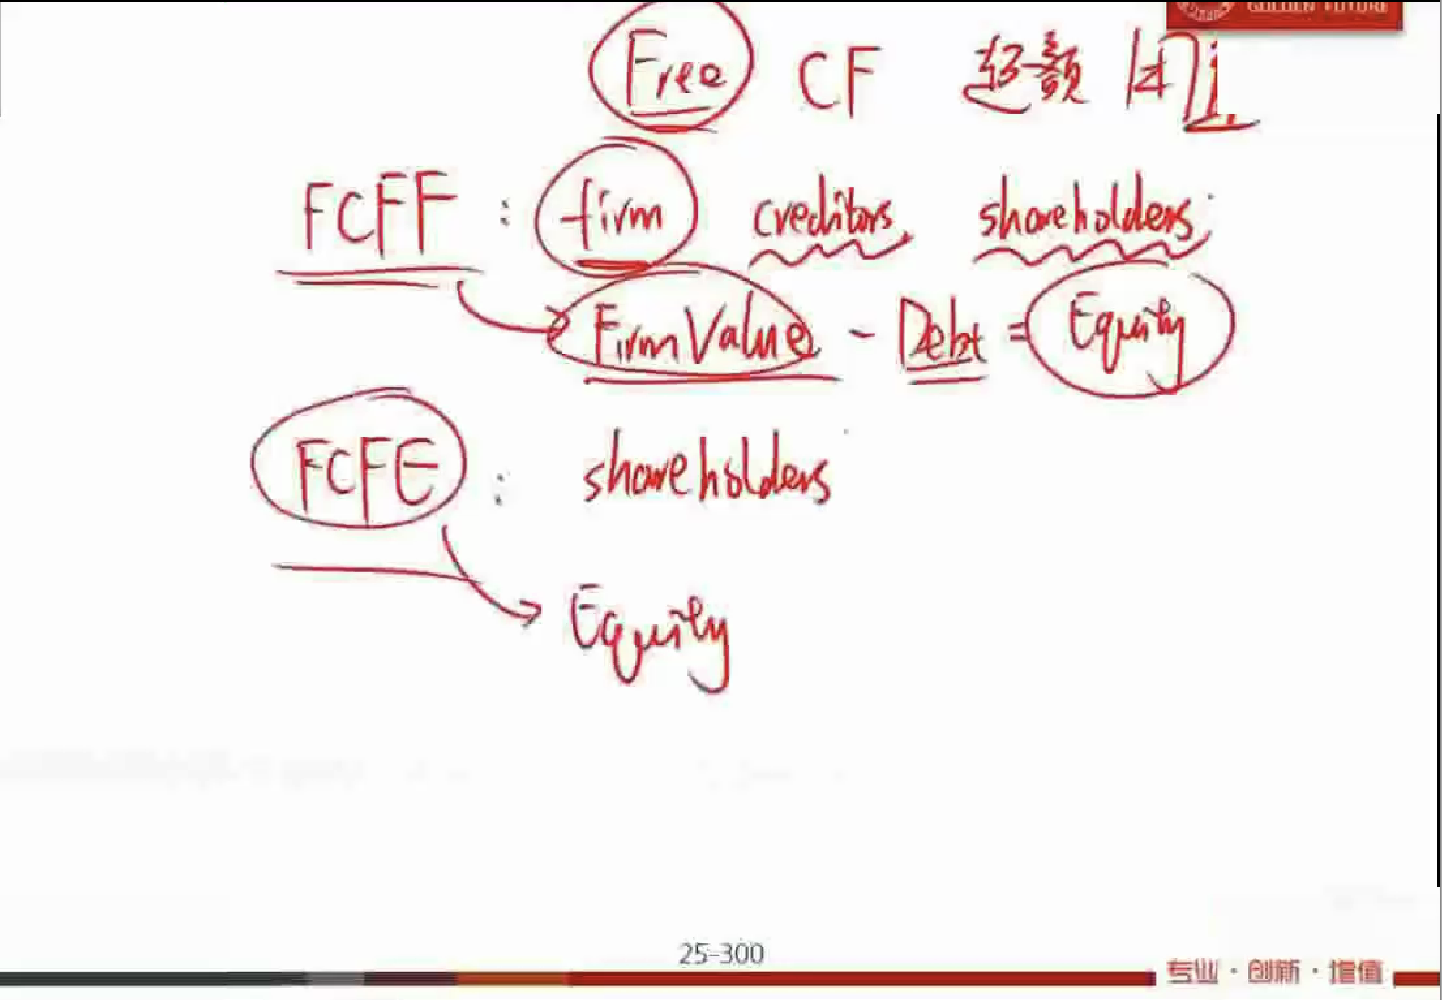 GOLDEN FUTURE
Free CF 超额
FCFF : firm creditors, shareholders
Firm Value - Debt = Equity
FCFE : shareholders
Equity
25-300
专业 · 创新 · 增值